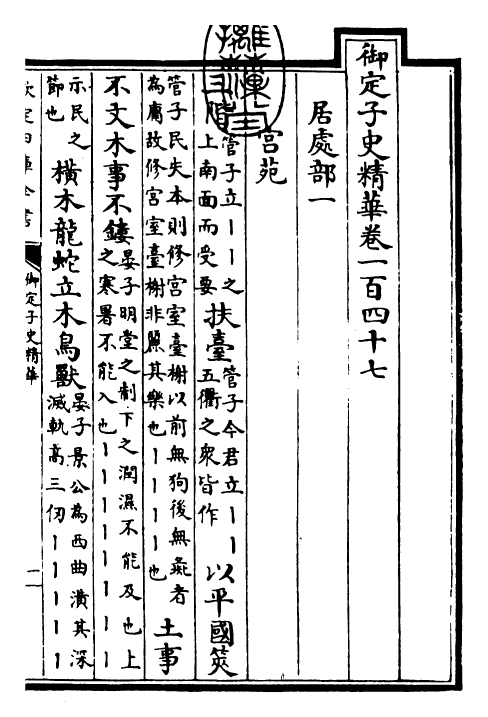 御定子史精華卷一百四十七
居處部一
宮苑
階管子立丨丨之上南面而受要扶臺管子今君立丨丨五衢之衆皆作以平國筴
管子民失本則修宮室臺榭以前無狗後無彘者為庸故修宮室臺榭非麗其樂也丨丨丨丨也土事
不文木事不鏤晏子明堂之制下之潤濕不能及也上之寒暑不能入也丨丨丨丨丨丨丨丨
示民之節也橫木龍蛇立木鳥獸晏子景公為西曲潢其深滅軌高三仞丨丨丨丨丨丨
欽定四庫全書
御定子史精華